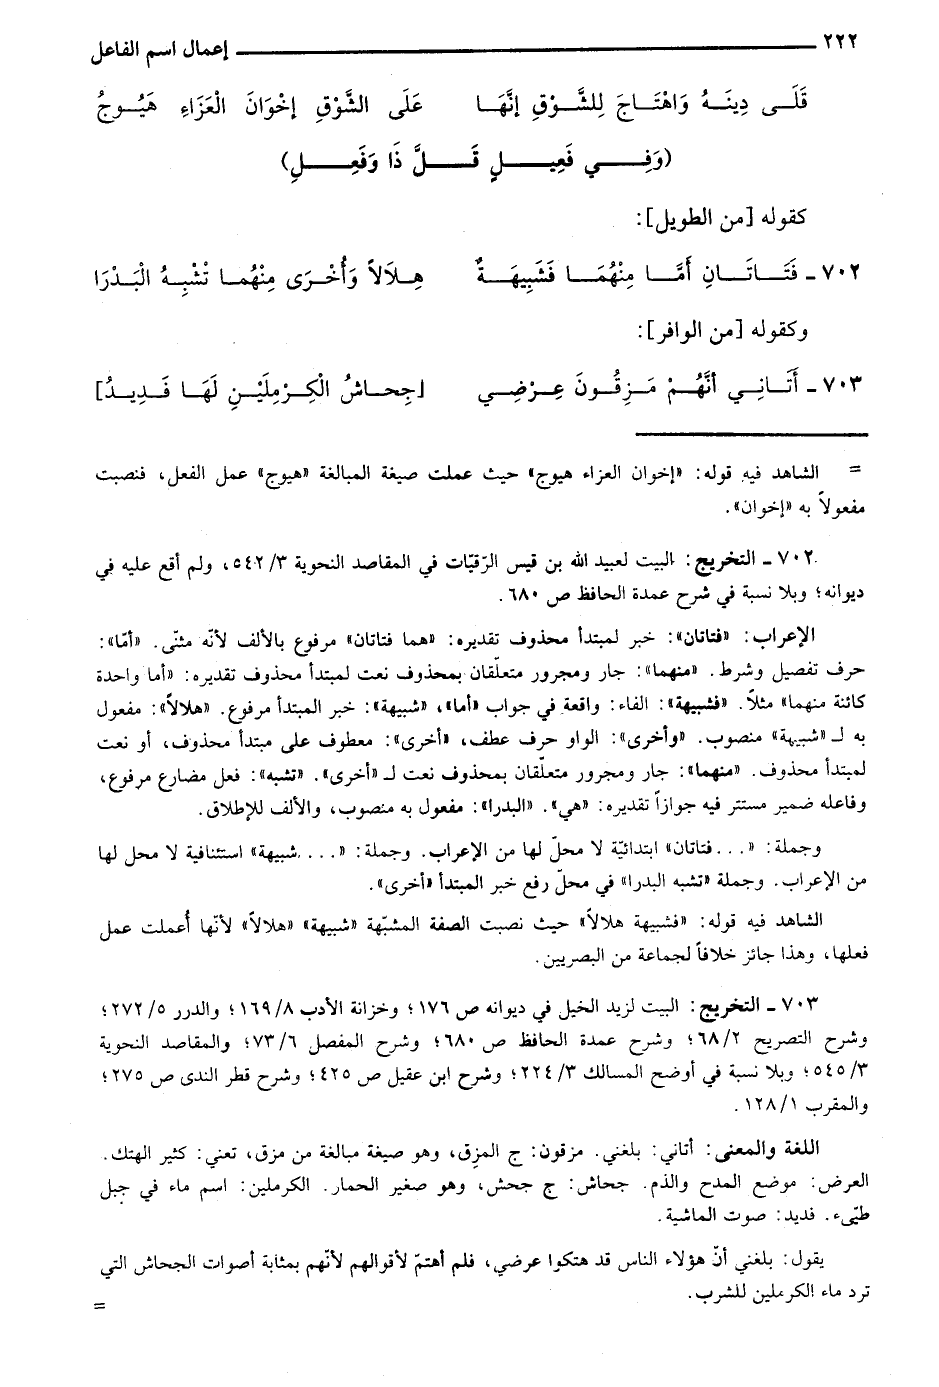 ٢٢٢ إعمال اسم الفاعل
قَلَى دِينَهُ وَاهْتَاجَ لِلشَّوْقِ إنَّهَا عَلَى الشَّوْقِ إخْوَانَ الْعَزَاءِ هَيُوجُ
(وَفِي فَعِيلٍ قَلَّ ذَا وَفَعِلِ)
كقوله [من الطويل]:
٧٠٢ ـ فَتَاتَانِ أَمَّا مِنْهُمَا فَشَبِيهَةٌ هِلَالاً وَأُخْرَى مِنْهُمَا تُشْبِهُ الْبَدْرَا
وكقوله [من الوافر]:
٧٠٣ ـ أَتَانِي أَنَّهُمْ مَزِقُونَ عِرْضِي [جِحَاشُ الْكِرْمِلَيْنِ لَهَا فَدِيدُ]
= الشاهد فيه قوله: «إخوان العزاء هيوج» حيث عملت صيغة المبالغة «هيوج» عمل الفعل، فنصبت
مفعولاً به «إخوان».
٧٠٢ ـ التخريج: البيت لعبيد الله بن قيس الرّقيّات في المقاصد النحوية ٣/ ٥٤٢، ولم أقع عليه في
ديوانه؛ وبلا نسبة في شرح عمدة الحافظ ص ٦٨٠.
الإعراب: «فتاتان»: خبر لمبتدأ محذوف تقديره: «هما فتاتان» مرفوع بالألف لأنّه مثنّى. «أمّا»:
حرف تفصيل وشرط. «منهما»: جار ومجرور متعلّقان بمحذوف نعت لمبتدأ محذوف تقديره: «أما واحدة
كائنة منهما» مثلاً. «فشبيهة»: الفاء: واقعة في جواب «أما»، «شبيهة»: خبر المبتدأ مرفوع. «هلالاً»: مفعول
به لـ «شبيهة» منصوب. «وأخرى»: الواو حرف عطف، «أخرى»: معطوف على مبتدأ محذوف، أو نعت
لمبتدأ محذوف. «منهما»: جار ومجرور متعلّقان بمحذوف نعت لـ «أخرى». «تشبه»: فعل مضارع مرفوع،
وفاعله ضمير مستتر فيه جوازاً تقديره: «هي». «البدرا»: مفعول به منصوب، والألف للإطلاق.
وجملة: «... فتاتان» ابتدائيّة لا محلّ لها من الإعراب. وجملة: «... شبيهة» استئنافية لا محل لها
من الإعراب. وجملة «تشبه البدرا» في محلّ رفع خبر المبتدأ «أخرى».
الشاهد فيه قوله: «فشبيهة هلالاً» حيث نصبت الصفة المشبّهة «شبيهة» «هلالاً» لأنّها أُعملت عمل
فعلها، وهذا جائز خلافاً لجماعة من البصريين.
٧٠٣ ـ التخريج: البيت لزيد الخيل في ديوانه ص ١٧٦؛ وخزانة الأدب ٨/ ١٦٩؛ والدرر ٥/ ٢٧٢؛
وشرح التصريح ٢/ ٦٨؛ وشرح عمدة الحافظ ص ٦٨٠؛ وشرح المفصل ٦/ ٧٣؛ والمقاصد النحوية
٣/ ٥٤٥؛ وبلا نسبة في أوضح المسالك ٣/ ٢٢٤؛ وشرح ابن عقيل ص ٤٢٥؛ وشرح قطر الندى ص ٢٧٥؛
والمقرب ١/ ١٢٨.
اللغة والمعنى: أتاني: بلغني. مزقون: ج المزق، وهو صيغة مبالغة من مزق، تعني: كثير الهتك.
العرض: موضع المدح والذم. جحاش: ج جحش، وهو صغير الحمار. الكرملين: اسم ماء في جبل
طيّىء. فديد: صوت الماشية.
يقول: بلغني أنّ هؤلاء الناس قد هتكوا عرضي، فلم أهتمّ لأقوالهم لأنّهم بمثابة أصوات الجحاش التي
ترد ماء الكرملين للشرب.
=